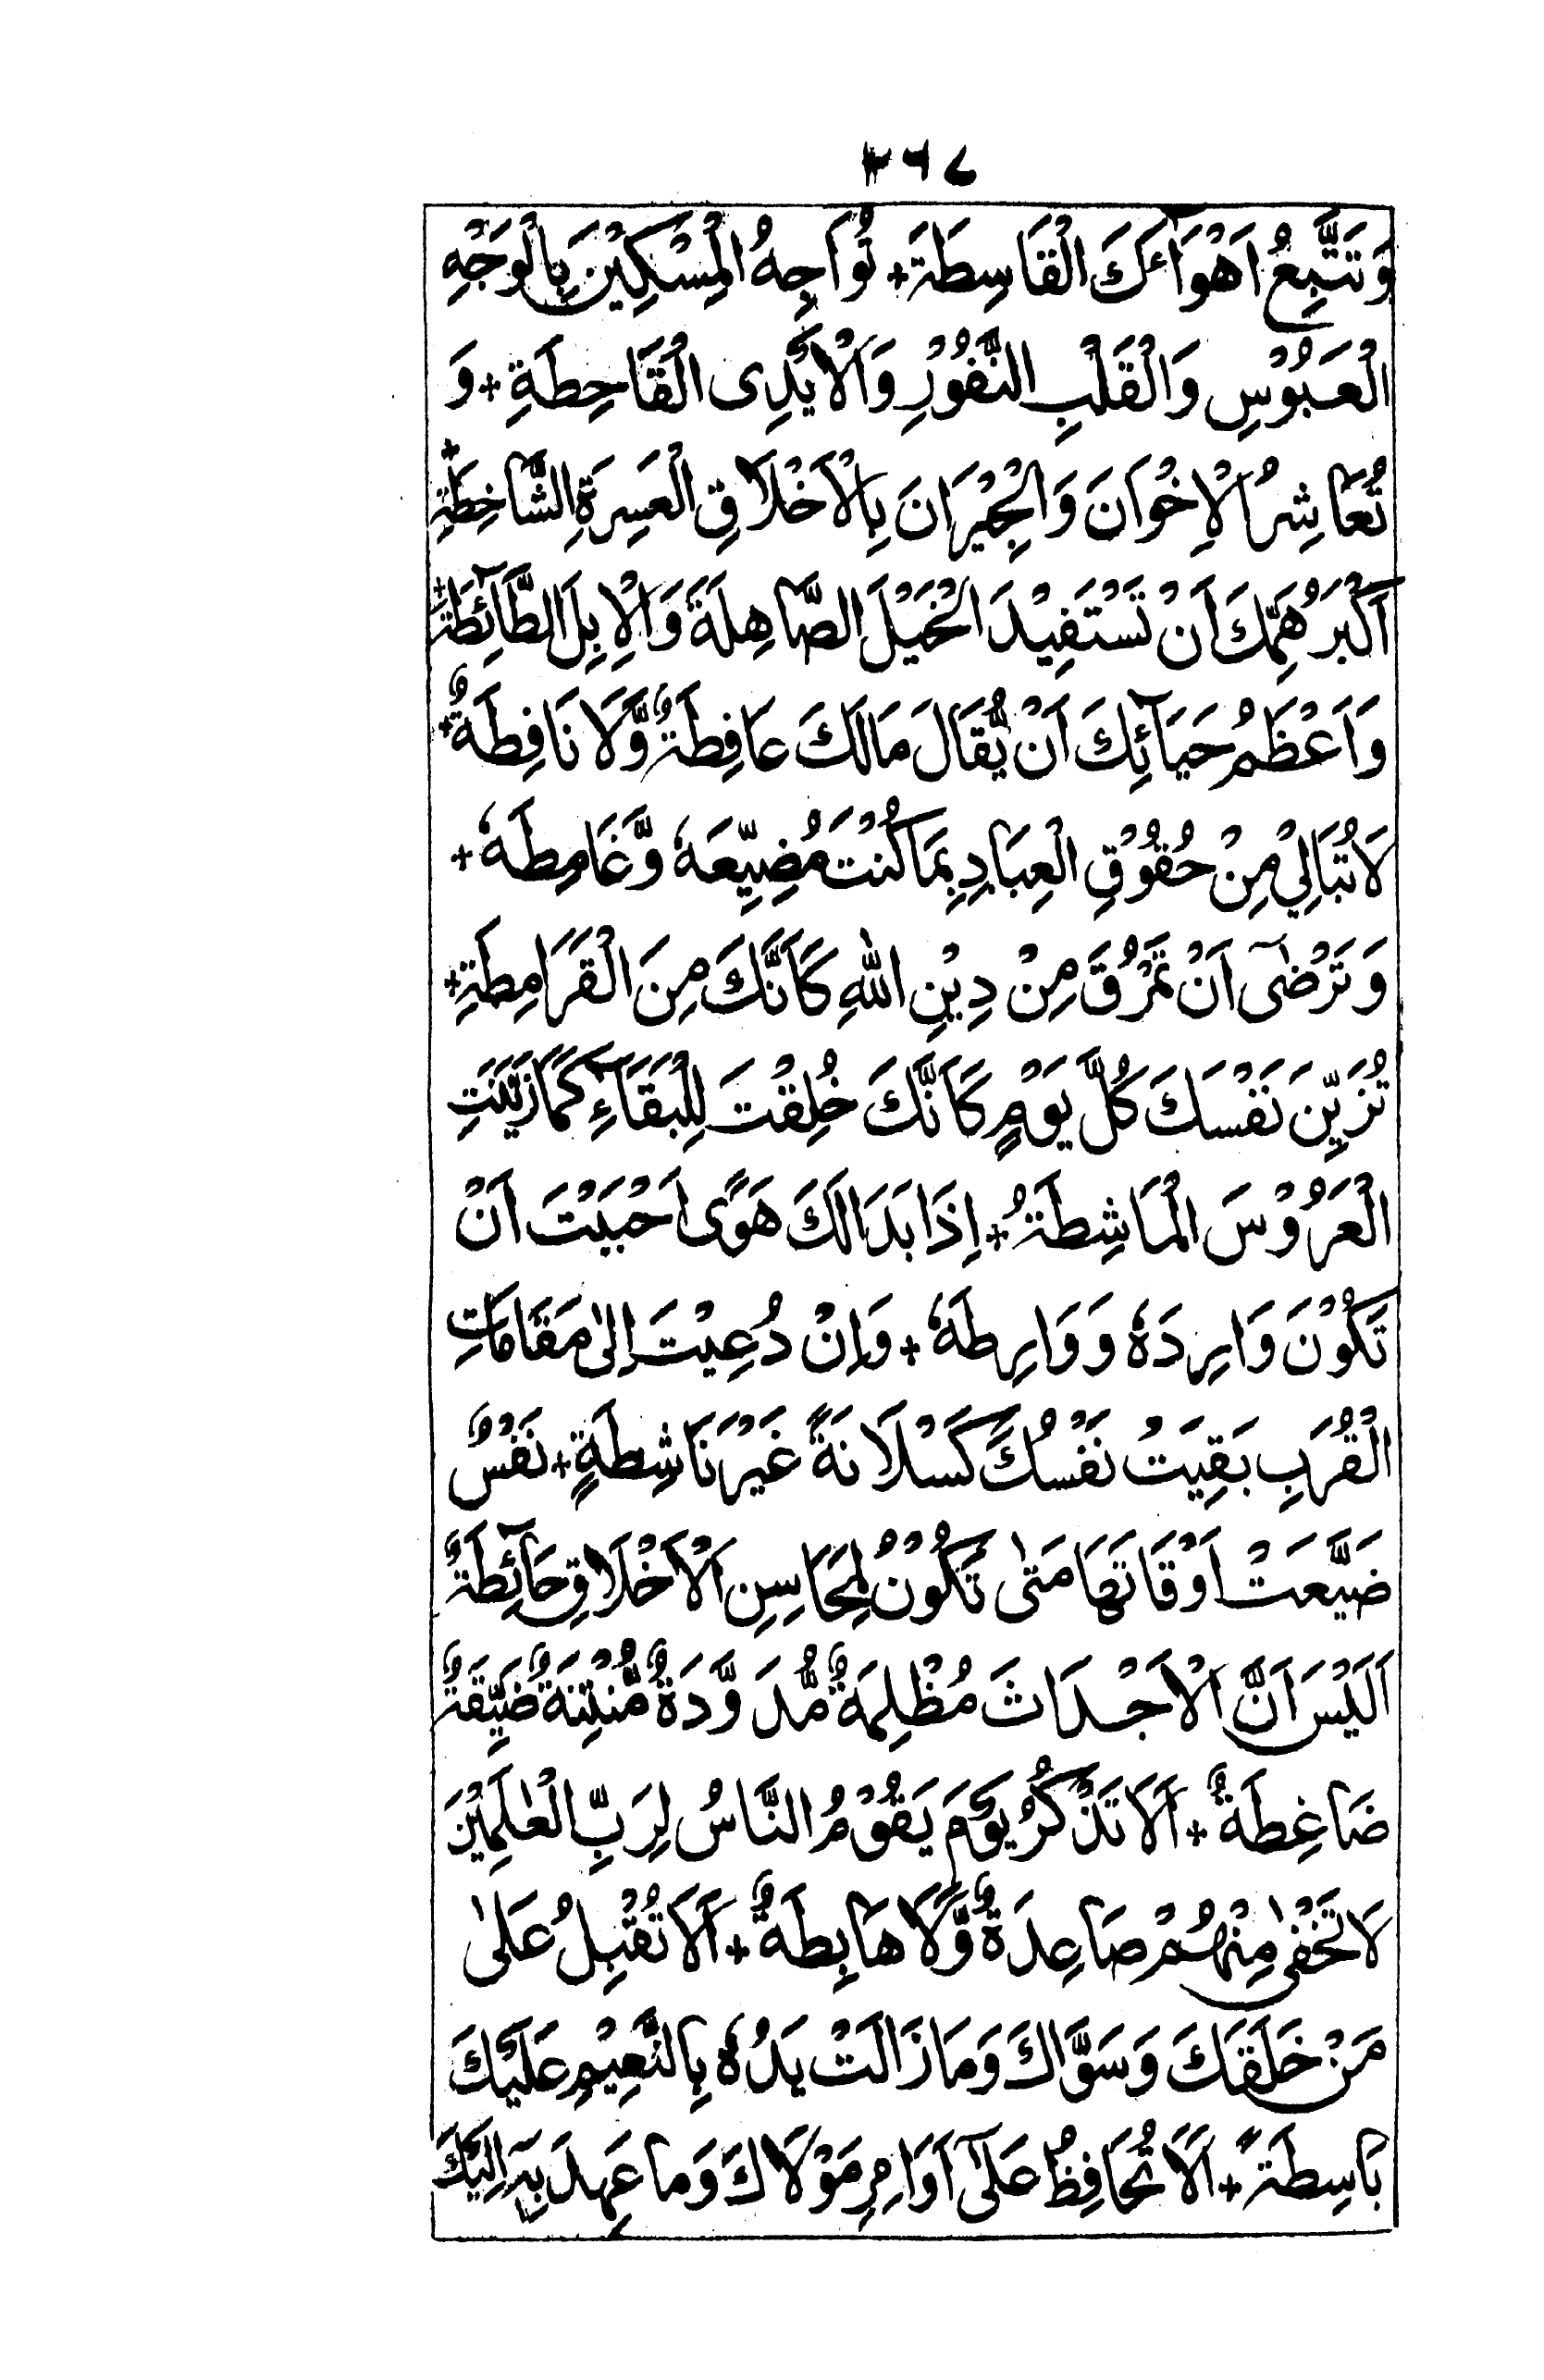 ٣٦٧
وَتَتَّبِعُ اَهْوَآئَكَ الْقَاسِطَةَ + تُوَاجِهُ الْمِسْكِيْنَ بِالْوَجْهِ
الْعَبُوْسِ وَالْقَلْبِ النَّفُوْرِ وَالْاَيْدِى الْقَاحِطَةِ + وَ
تُعَاشِرُ الْاِخْوَانَ وَالْجِيْرَانَ بِالْاَخْلَاقِ الْعَسِرَةِ الشَّاحِطَةِ +
اَكْبَرُ هَمِّكَ اَنْ تَسْتَفِيْدَ الْخَيْلَ الصَّاهِلَةَ وَالْاِبِلَ الطَّآئِطَةَ +
وَاَعْظَمُ حَيَآئِكَ اَنْ يُّقَالَ مَالَكَ عَافِطَةٌ وَّلَا نَافِطَةٌ +
لَا تُبَالِيْ مِنْ حُقُوْقِ الْعِبَادِ بِمَا كُنْتَ مُضِيِّعَهٗ وَّغَامِطَهٗ +
وَتَرْضٰى اَنْ تَمْرُقَ مِنْ دِيْنِ اللهِ كَاَنَّكَ مِنَ الْقَرَامِطَةِ +
تُزَيِّنَ نَفْسَكَ كُلَّ يَوْمٍ كَاَنَّكَ خُلِقْتَ لِلْبَقَآءِ كَمَا زَيَّنَتِ
الْعَرُوْسَ الْمَاشِطَةُ + اِذَا بَدَا لَكَ هَوًى اَحْبَبْتَ اَنْ
تَكُوْنَ وَارِدَهٗ وَوَارِطَهٗ + وَاِنْ دُعِيْتَ اِلٰى مَقَامَاتِ
الْقُرَبِ بَقِيَتْ نَفْسُكَ كَسْلَانَةً غَيْرَ نَاشِطَةٍ + نَفْسٌ
ضَيَّعَتْ اَوْقَاتَهَا مَتٰى تَكُوْنُ لِمَحَاسِنِ الْاَخْلَاقِ حَآئِطَةً
اَلَيْسَ اَنَّ الْاَجْدَاثَ مُظْلِمَةٌ مُّدَوَّدَةٌ مُّنْتِنَةٌ ضَيِّقَةٌ
ضَاغِطَةٌ + اَلَا تَذْكُرُ يَوْمَ يَقُوْمُ النَّاسُ لِرَبِّ الْعٰلَمِيْنَ
لَا تَخْفٰى مِنْهُمْ صَاعِدَةٌ وَّلَا هَابِطَةٌ + اَلَا تُقْبِلُ عَلٰى
مَنْ خَلَقَكَ وَسَوَّاكَ وَمَا زَالَتْ يَدُهٗ بِالنَّعِيْمِ عَلَيْكَ
بَاسِطَةً + اَلَا تُحَافِظُ عَلٰٓى اَوَامِرِ مَوْلَاكَ وَمَا عَهِدَ بِهٖ اِلَيْكَ